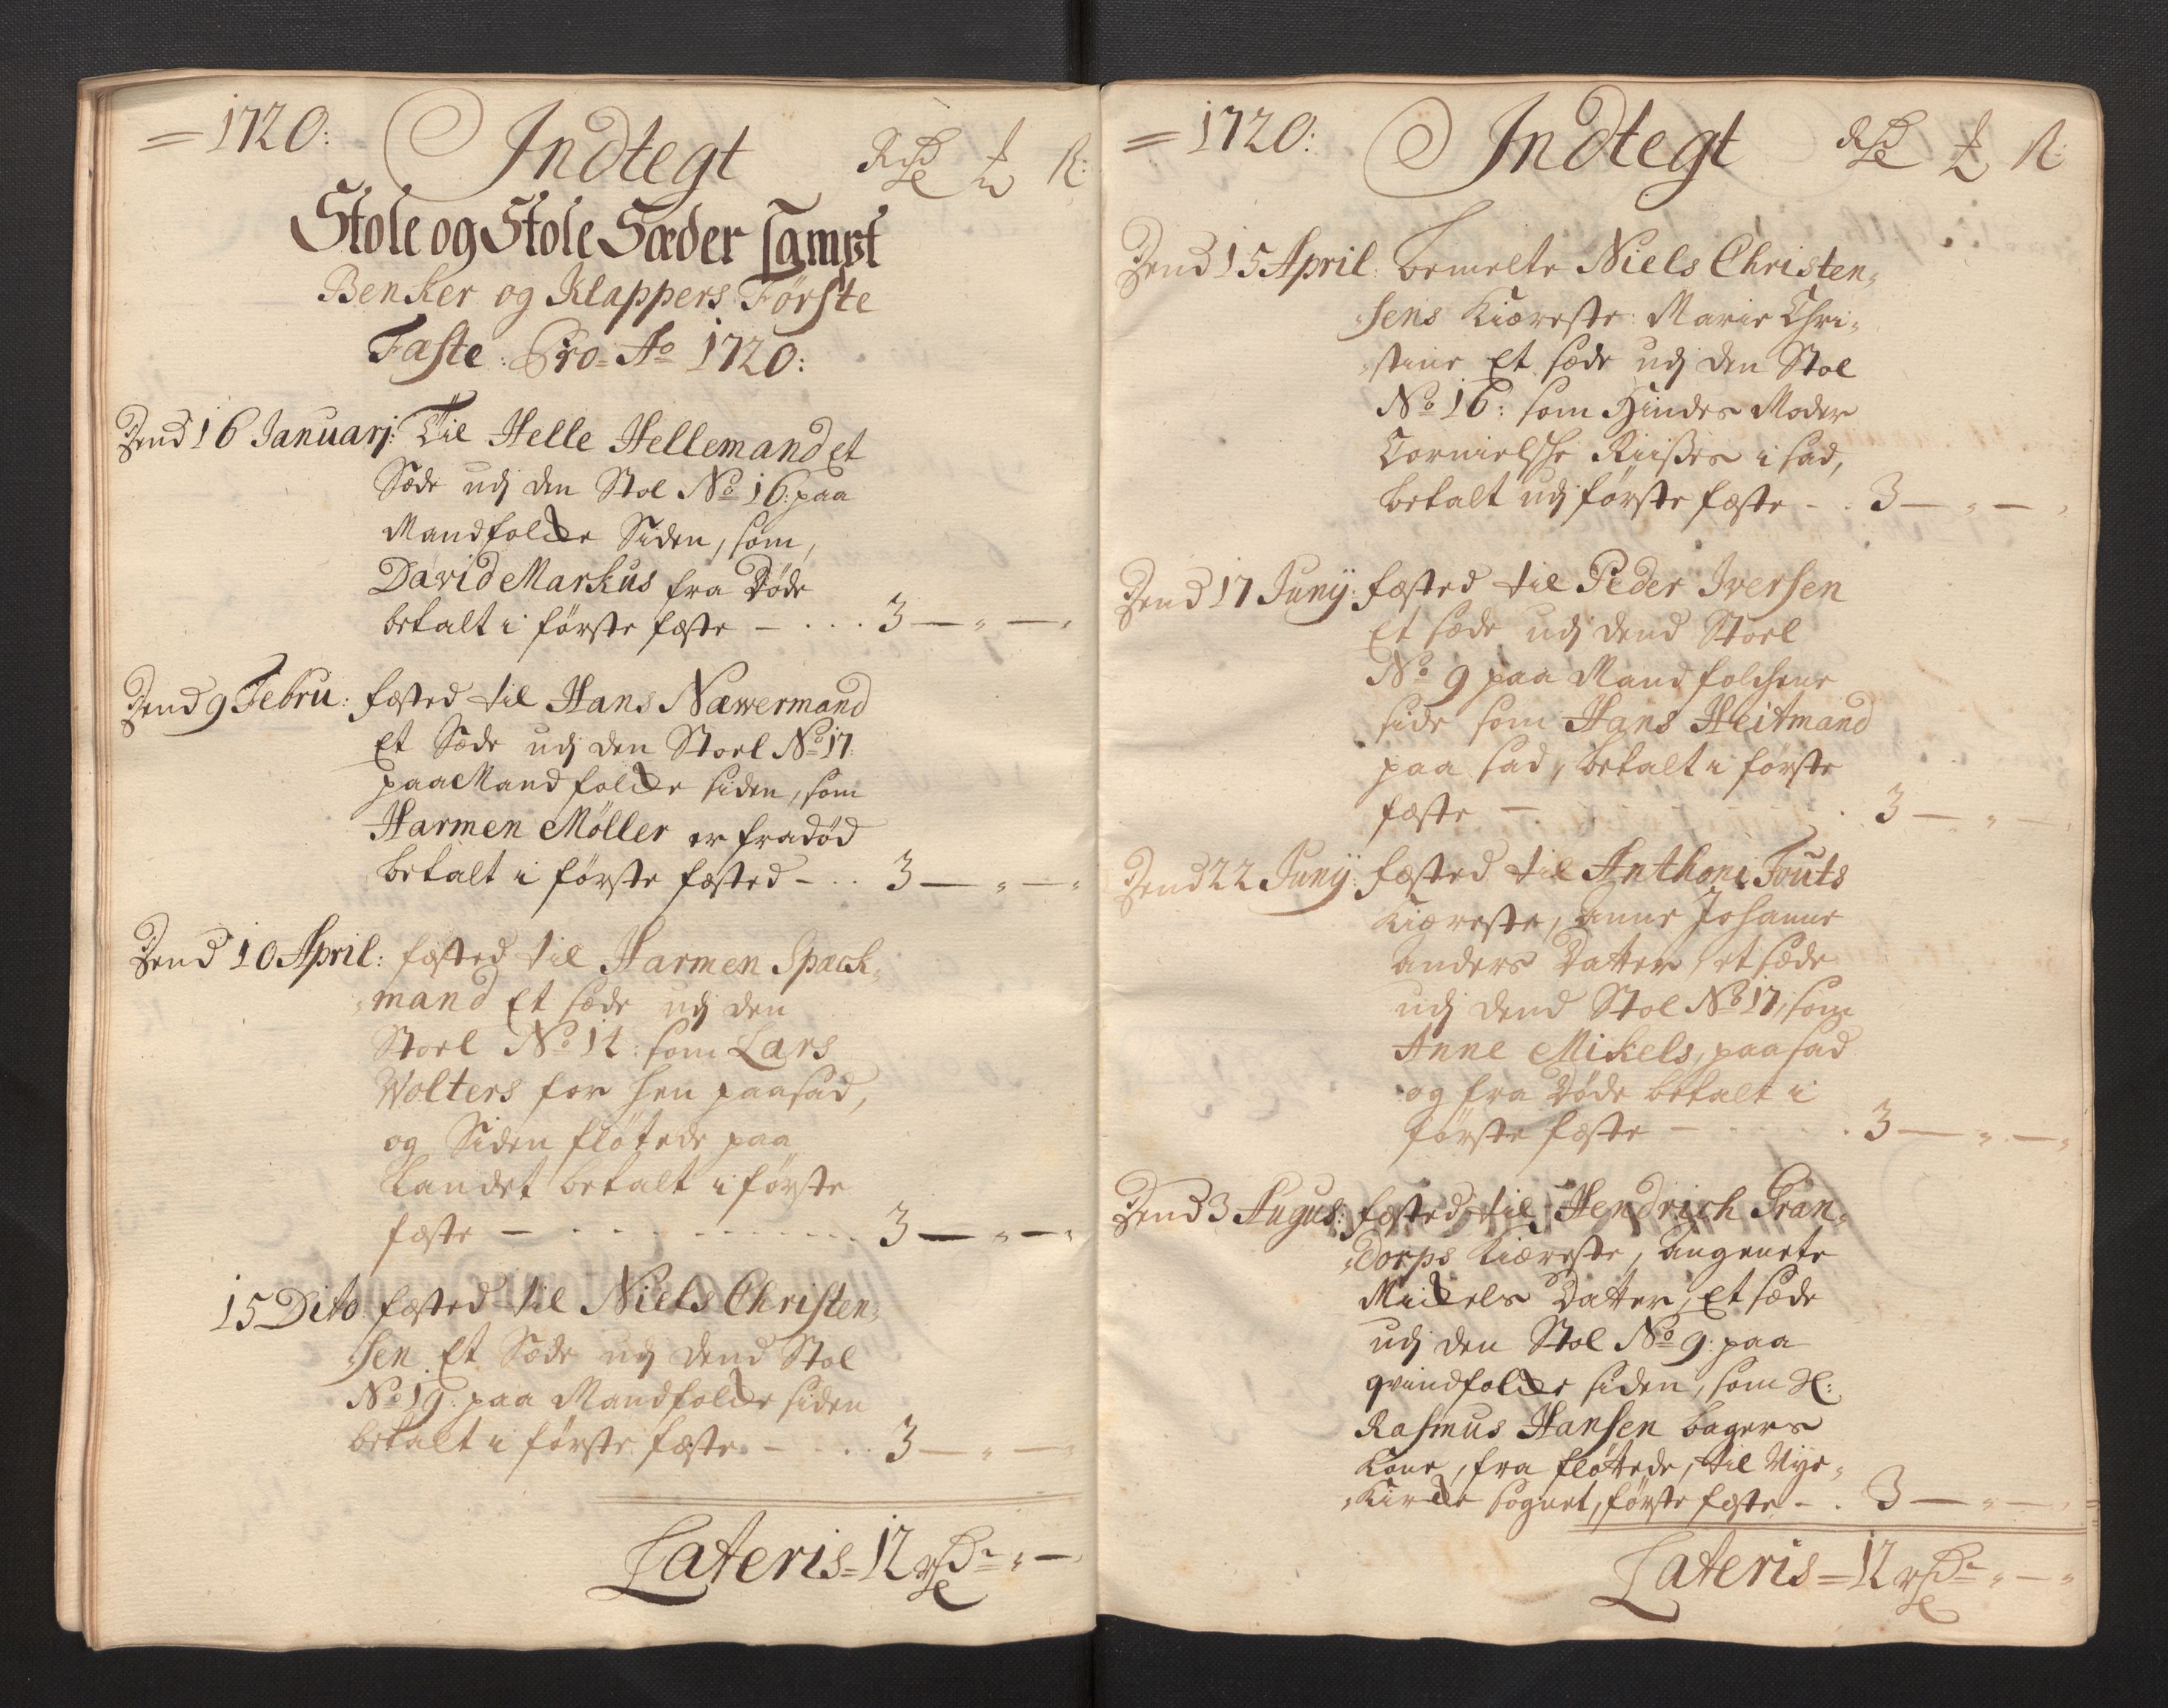 = 1720: Indtegt Rdr ß
Stole og Stole Sæder sampt
Benker og Klappers Første
Fæste: Pro Ao 1720:
Dend 16 Januarj: Til Helle Hellemand Et
Sæde udj den Stol No 16. paa
Mandfolcke Siden, som,
David Markus fra Døde
betalt i første fæste - ... 3 — " — "
Dend 9 Febru: fæsted til Hans Næwermand
Et Sæde udj den Stoel No 17.
paa Mandfolcke siden, som
Harmen Møller er fradød
betalt i første fæsted - .. 3 — " — "
Dend 10 April: fæsted til Harmen Spæck-
mand Et sæde udj den
Stoel No 12: som Lars
Wolters for hen paasad,
og Siden fløtede paa
Landet betalt i første
fæste - ... 3 — " — "
15 Dito fæsted til Niels Christen-
sen Et Sæde udj dend Stol
No 19. paa Mandfolcke siden
betalt i første fæste - ... 3 — " —
Lateris = 12 rdr " —
= 1720: Indtegt Rdr ß
Dend 15 April: bemelte Niels Christen-
sens Kiæreste: Marie Chri-
stine Et sæde udj den Stol
No 16: som Hindes Moder
Cornielsche Riisses i sad,
betalt udj første fæste - . 3 — " — "
Dend 17 Junij: fæsted til Peder Iversen
Et sæde udj dend Stoel
No 9 paa Mandfolchene
side som Hans Heitmand
paa sad, betalt i første
fæste - ... 3 — " — "
Dend 22 Junij: fæsted til Anthoni Touts
Kiæreste, Anne Johanne
Anders Datter, et sæde
udj dend Stol No 17, som
Anne Mikels, paasad
og fra Døde betalt i
første fæste - ... 3 — " — "
Dend 3 Augus: fæsted til Hendrich Gran-
dorps Kiæreste, Angenete
Mickels Datter, Et sæde
udj den Stol No 9. paa
qvindfolcke siden, som Sl:
Rasmus Hansen bagers
Kone, fra fløttede, til Nye-
Kircke sognet, første fæste - . 3 — " — "
Lateris = 12 rdr " — "